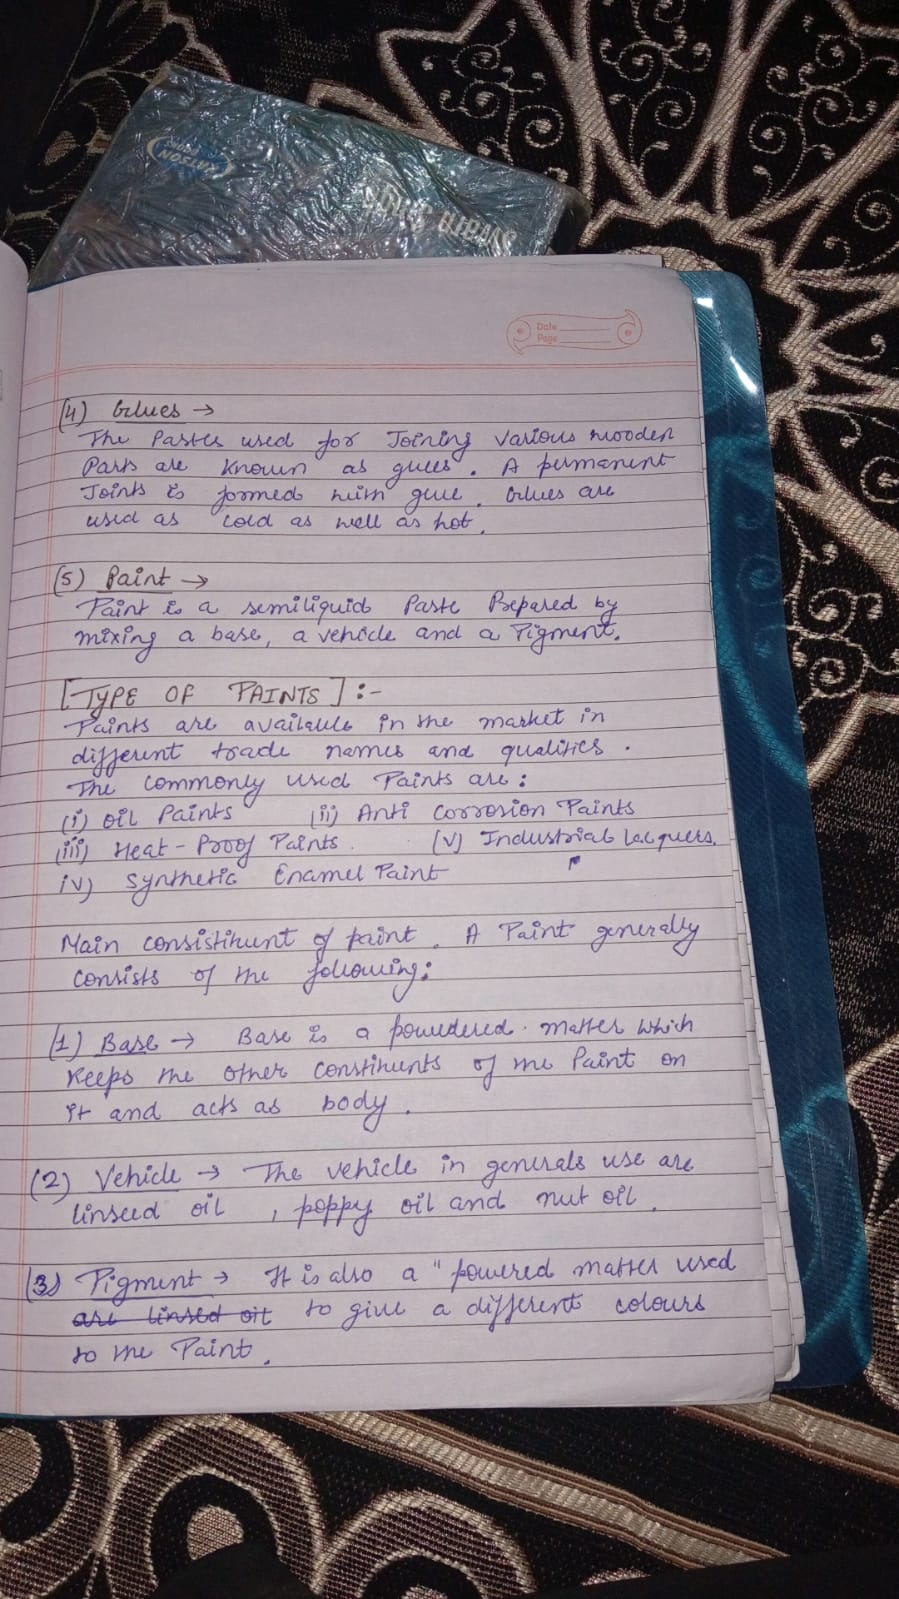 WATSON
Date
Page
(4) Glues →
The Pastes used for Joining various wooden
Parts are known as glues. A permanent
Joints is formed with glue. Glues are
used as cold as well as hot.
(5) Paint →
Paint is a semiliquid Paste Prepared by
mixing a base, a vehicle and a Pigment.
[TYPE OF PAINTS] :-
Paints are available in the market in
different trade names and qualities.
The commonly used Paints are:
(i) Oil Paints (ii) Anti Corrosion Paints
(iii) Heat-Proof Paints. (v) Industrial Lacquers.
iv) Synthetic Enamel Paint
Main consistituent of paint. A Paint generally
consists of the following:
(1) Base → Base is a powedered matter which
Keeps the other constituents of the Paint on
it and acts as body.
(2) Vehicle → The vehicle in generals use are
linseed oil , poppy oil and nut oil.
(3) Pigment → It is also a " powered matter used
are linsed oil to give a different colours
to the Paint.